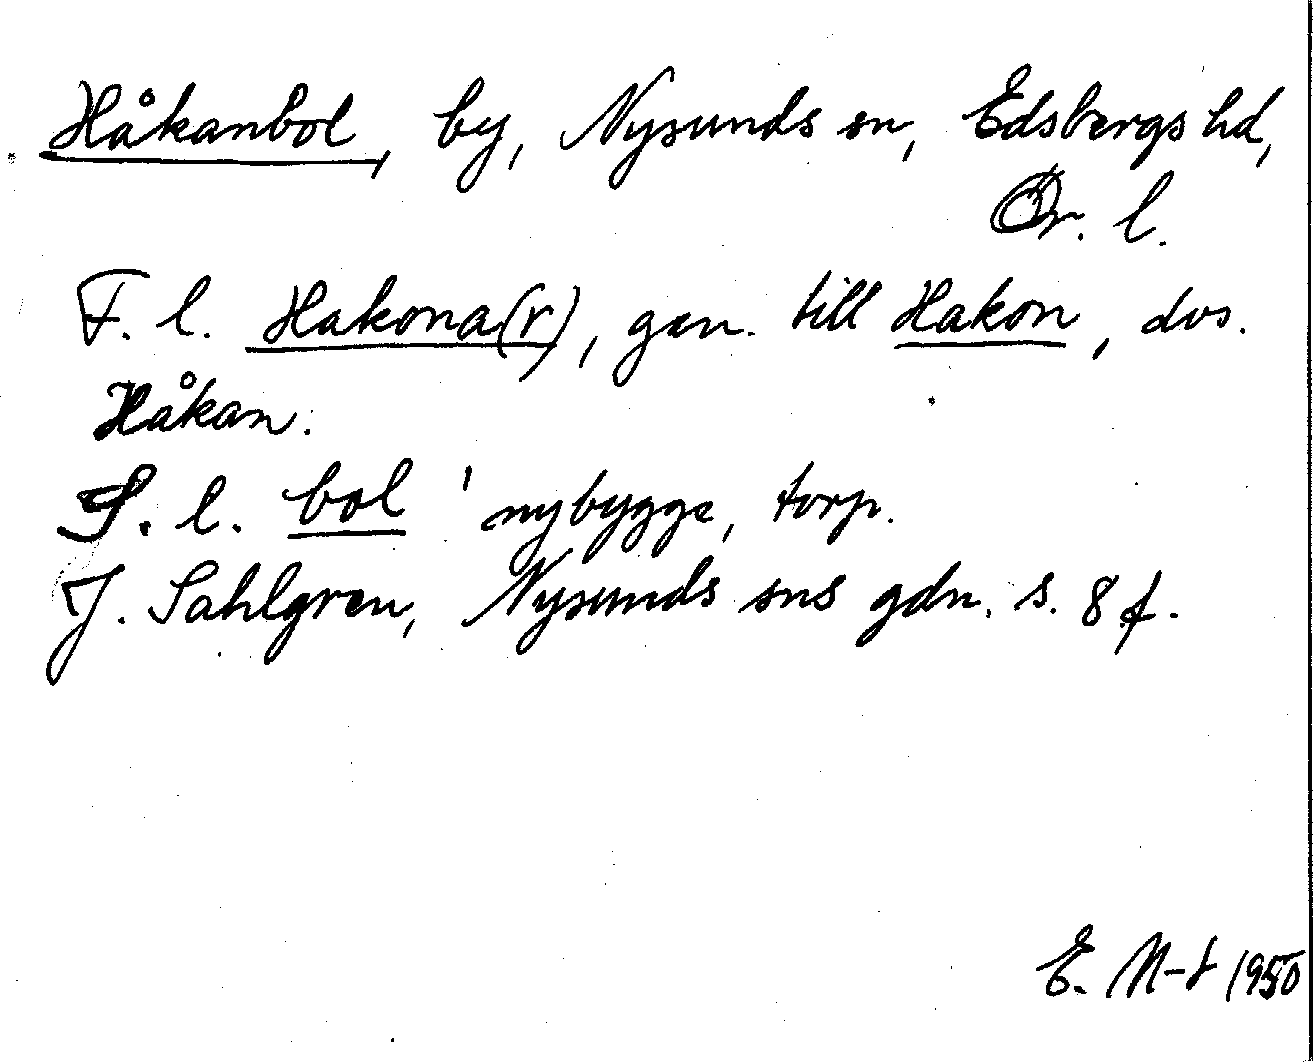 Håkanbol, by, Nysunds sn, Edsbergs hd,
Ör. l.
F. l. Hakona(r), gen. till Hakon, dvs.
Håkan.
S. l. bol ' nybygge, torp.
J. Sahlgren, Nysunds sns gdn. s. 8 f.
E. M-t 1950